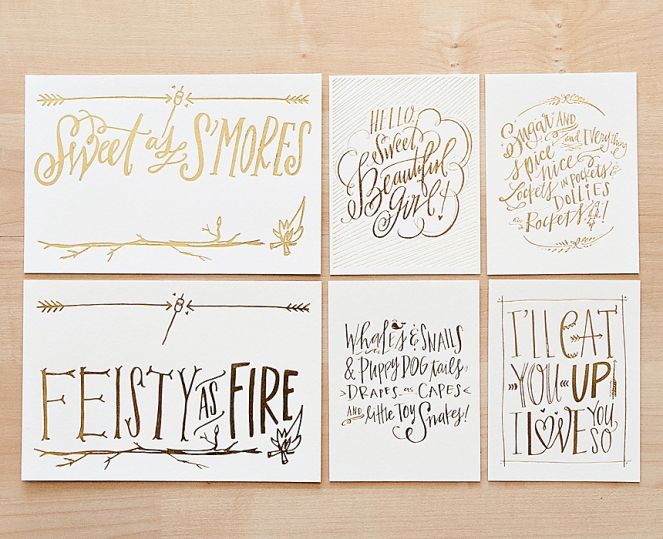 Sweet as S'MORES
HELLO,
Sweet,
Beautiful
girl!
Sugar AND
spice and Everything
nice
Lockets IN POCKETS
DOLLIES
& Rockets!
FEISTY AS FIRE
Whales & SNAILS
& PUPPY DOG tails,
DRAPES as CAPES
AND little Toy
Snakes!
I'LL EAT
YOU UP
I LOVE YOU
SO